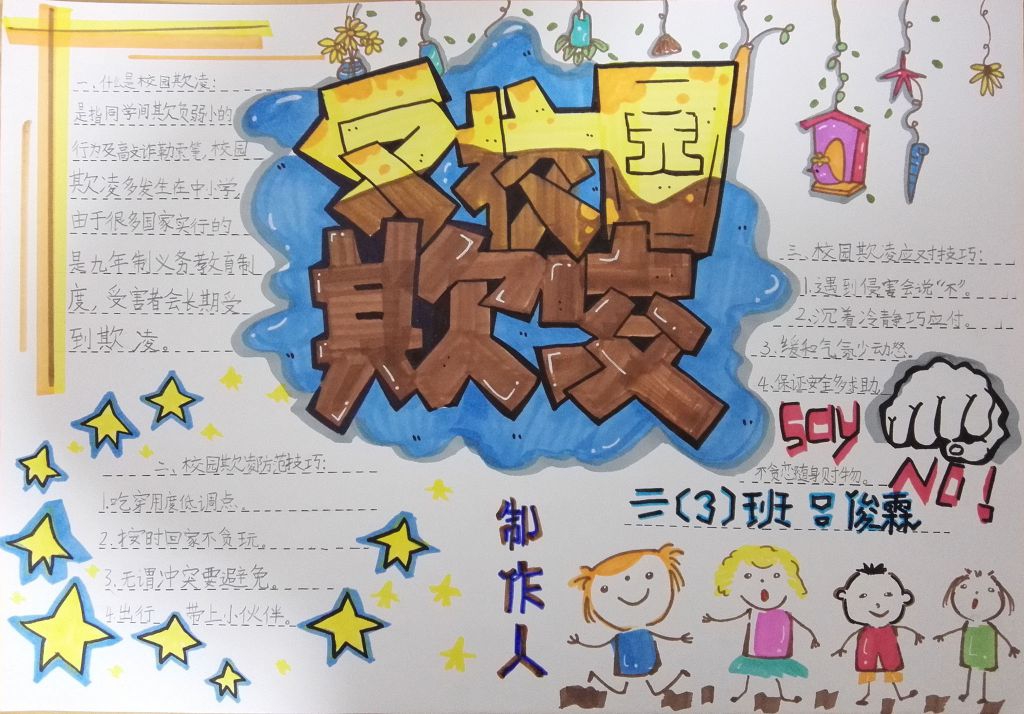 反校园
欺凌
一、什么是校园欺凌:
是指同学间欺负弱小的
行为及敲诈勒索等,校园
欺凌多发生在中小学,
由于很多国家实行的
是九年制义务教育制
度,受害者会长期受
到欺凌。
二、校园欺凌防范技巧:
1.吃穿用度低调点。
2.按时回家不贪玩。
3.无谓冲突要避免。
4.出行 带上小伙伴。
三、校园欺凌应对技巧:
1.遇到侵害会说“不”。
2.沉着冷静巧应付。
3.缓和气氛少动怒。
4.保证安全多求助,
不贪恋随身财物。
Say
NO!
制作人
三(3)班 吕俊霖